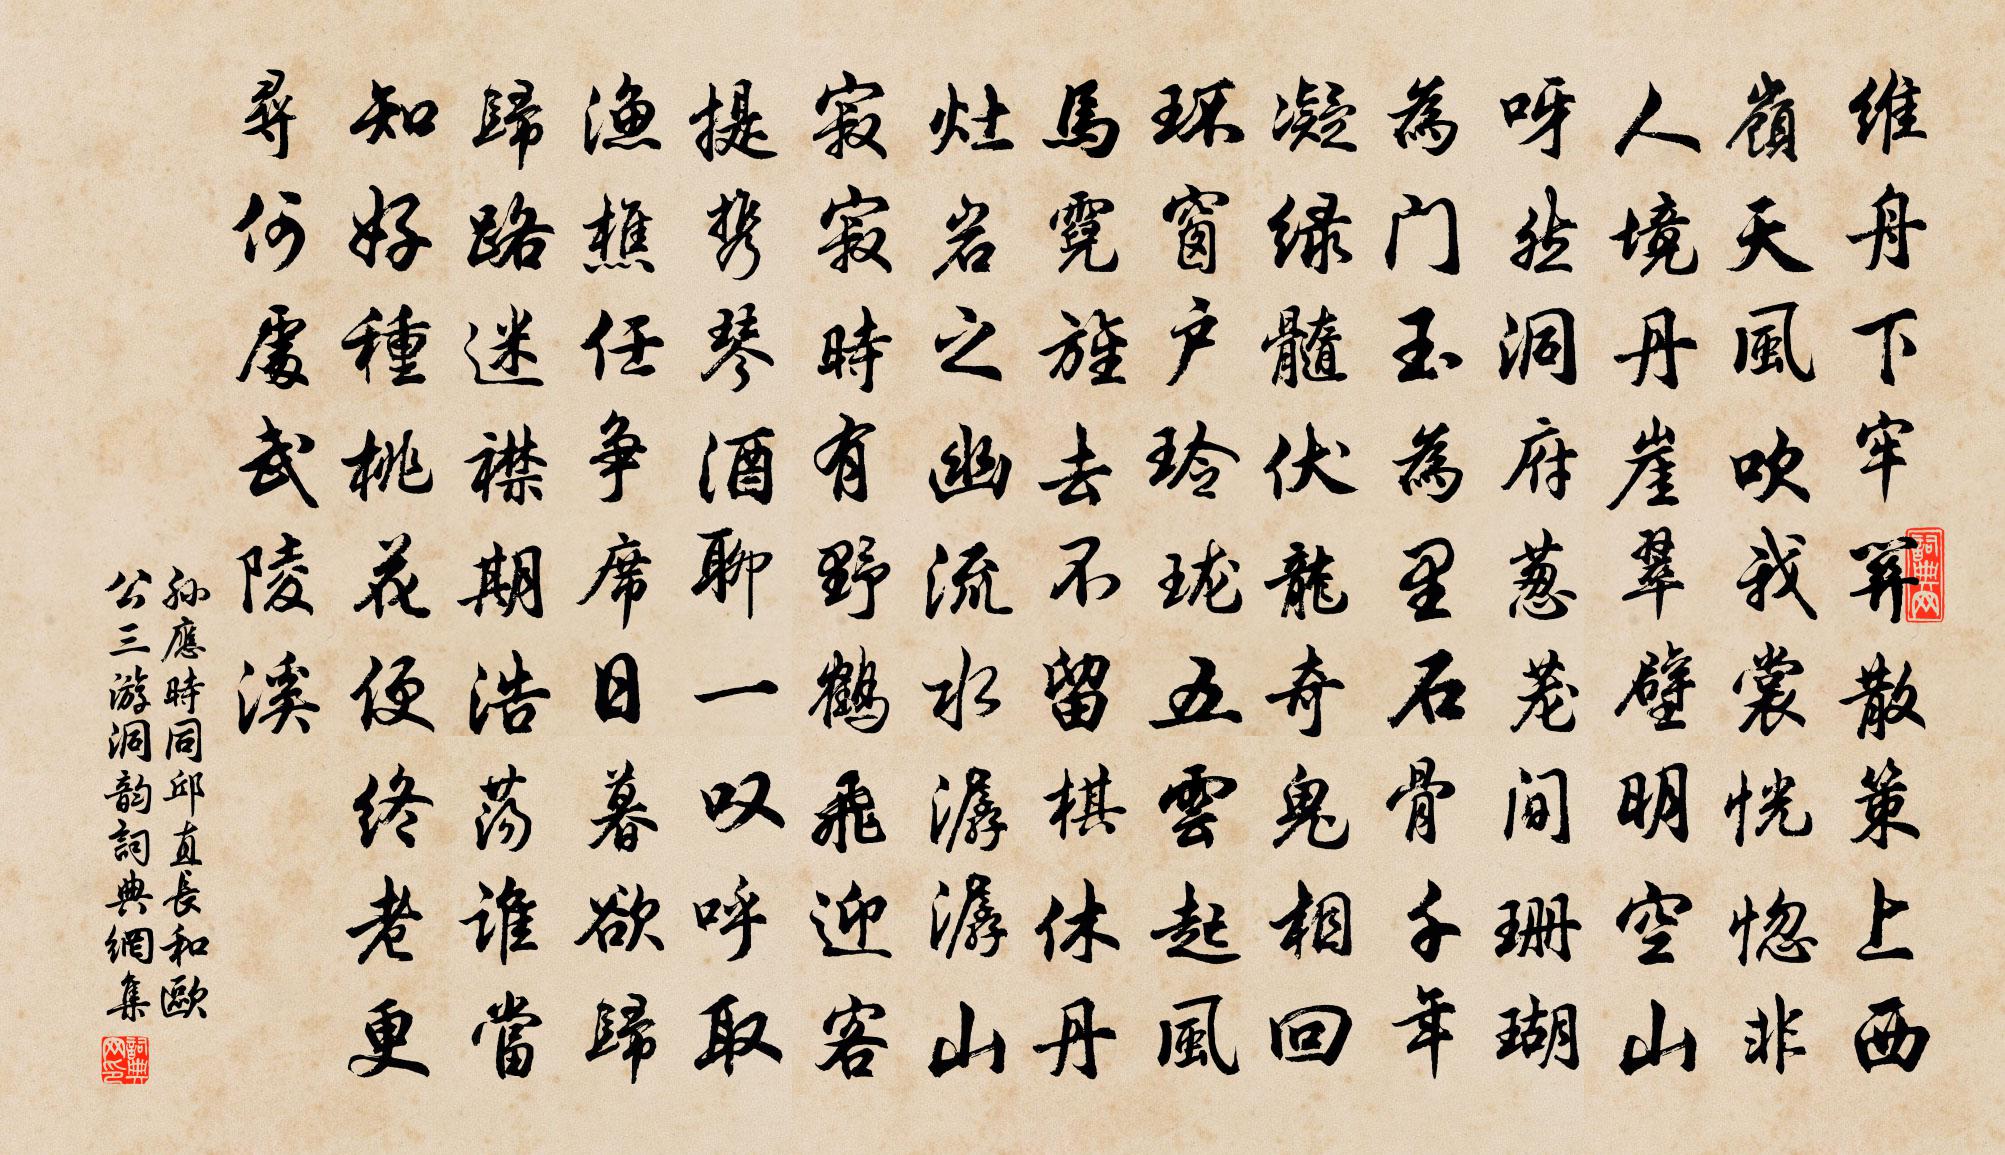 維舟下牢關散策上西
嶺天風吹我裳恍惚非
人境丹崖翠壁明空山
呀然洞府葱茏間珊瑚
為门玉為里石骨千年
凝绿髓伏龍奇鬼相回
环窗户玲珑五雲起風
馬霓旌去不留棋休丹
灶岩之幽流水潺潺山
寂寂時有野鶴飛迎客
提携琴酒聊一叹呼取
漁樵任争席日暮欲歸
歸路迷襟期浩荡誰當
知好種桃花便终老更
尋何處武陵溪
孙應時同邱直長和歐
公三游洞韵詞典網集
詞典网
詞典网印